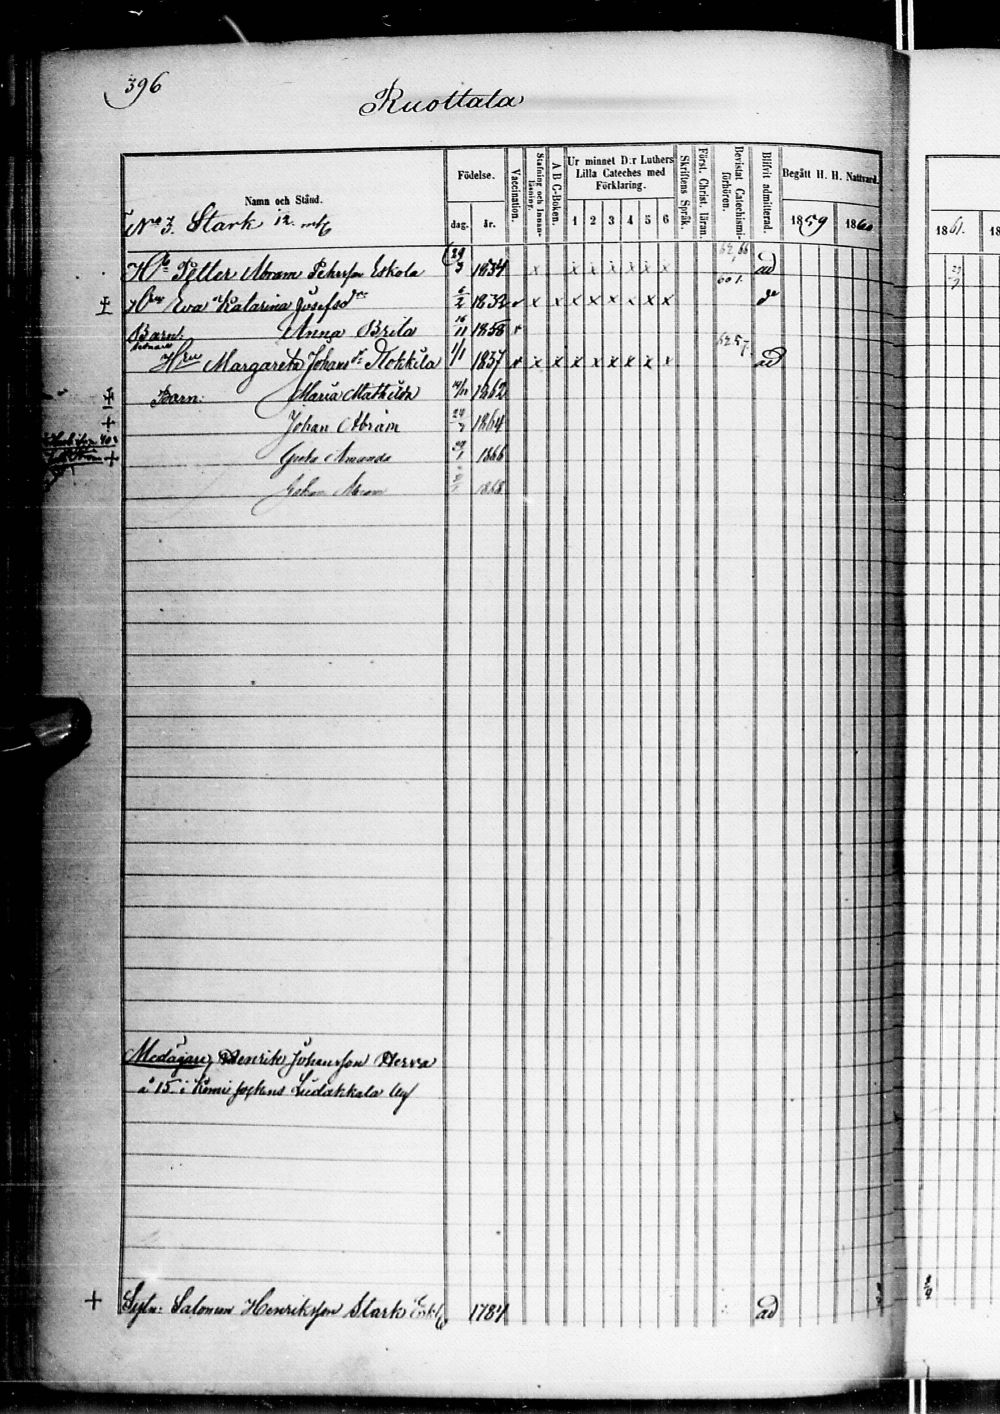 396
Ruottala
Namn och Stånd.
Födelse.
dag. år.
Vaccination.
Stafning och Innan-läsning.
A B C-Boken.
Ur minnet D:r Luthers Lilla Cateches med Förklaring.
1 2 3 4 5 6
Skriftens Språk.
Först. Christ. läran.
Bevistat Catechismi-förhören.
Blifvit admitterad.
Begått H. H. Nattvard.
1859 1860
1861.
No 3. Stark 12.
Petter Abram Pehrsson Eskola 29/3 1834 x x x x x x x 62, 66 ad
Eva Katarina Josefsd 6/2 1832 x x x x x x x x
Barn. Anna Brita 16/11 1858 x
Hru Margareta Johansd Nokkila 1/1 1837 x x x x x x x x x ad
Barn: Maria Mathilda 1862
Johan Abram 1864
Greta Amanda 1866
Johan Abram 1868
Medägare, Henrik Johansson Herva
à 15 i Kemi sockens Liedakkala by
Sytn: Salomon Henriksson Stark 1787 ad